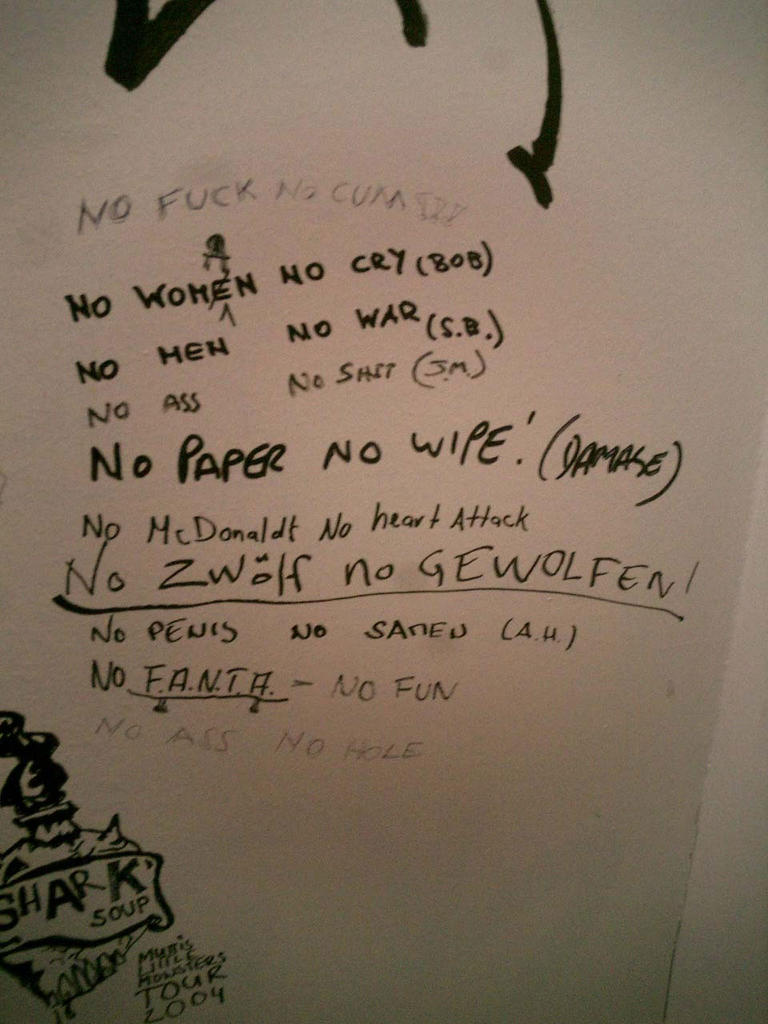 NO FUCK NO CUM
A
NO WOMEN NO CRY (BOB)
NO MEN NO WAR (S.B.)
NO ASS NO SHIT (J.M.)
NO PAPER NO WIPE! (DAMAGE)
No McDonaldt No heart Attack
No ZWölf no GEWOLFEN!
NO PENIS NO SAMEN (A.H.)
NO F.A.N.T.A. - NO FUN
NO ASS NO HOLE
SHARK
SOUP
MUTTIS
LITTLE
MONSTERS
TOUR
2004